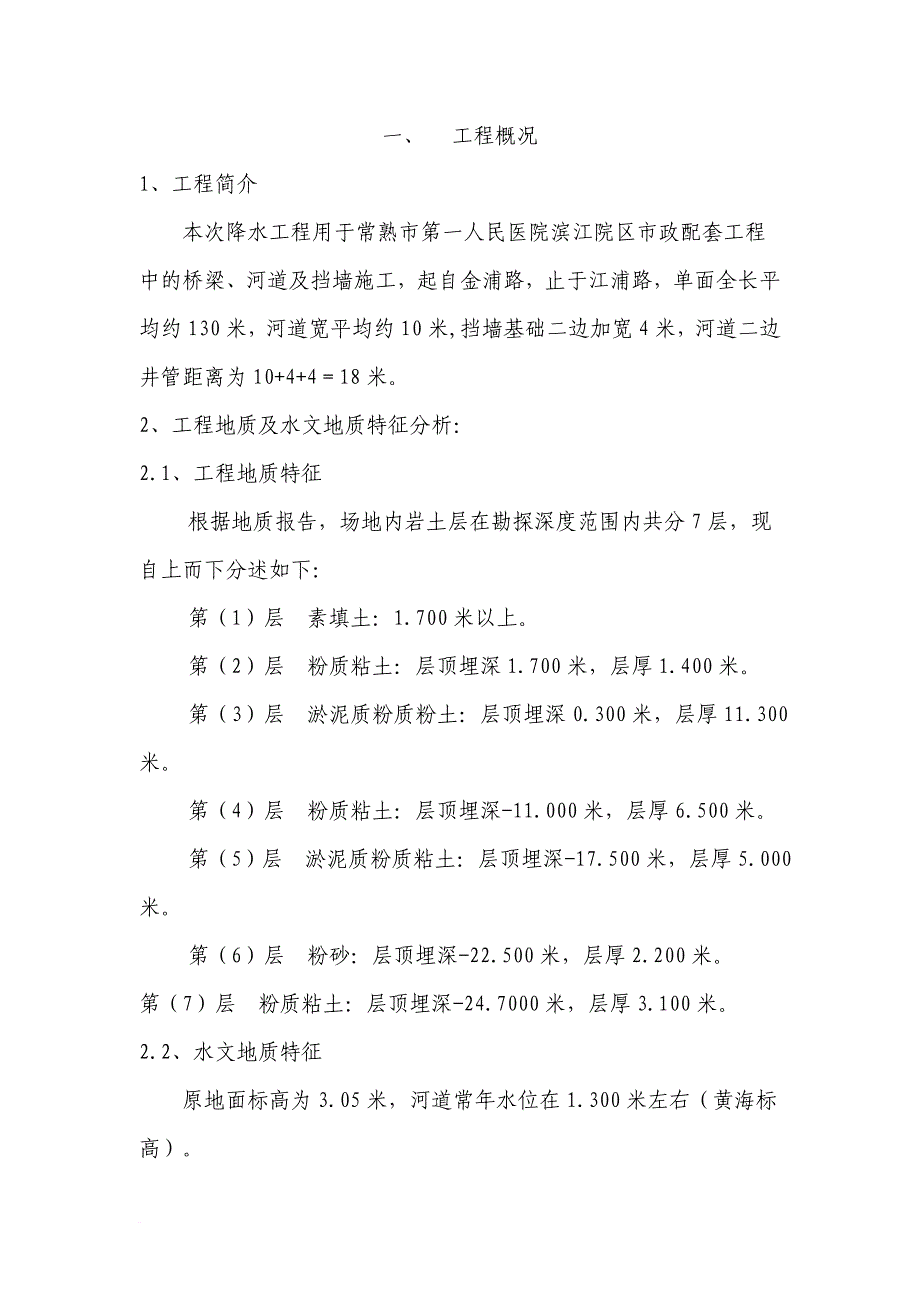 一、 工程概况
1、工程简介
本次降水工程用于常熟市第一人民医院滨江院区市政配套工程
中的桥梁、河道及挡墙施工，起自金浦路，止于江浦路，单面全长平
均约 130 米，河道宽平均约 10 米,挡墙基础二边加宽 4 米，河道二边
井管距离为 10+4+4＝18 米。
2、工程地质及水文地质特征分析：
2.1、工程地质特征
根据地质报告，场地内岩土层在勘探深度范围内共分 7 层，现
自上而下分述如下：
第（1）层 素填土：1.700 米以上。
第（2）层 粉质粘土：层顶埋深 1.700 米，层厚 1.400 米。
第（3）层 淤泥质粉质粉土：层顶埋深 0.300 米，层厚 11.300
米。
第（4）层 粉质粘土：层顶埋深-11.000 米，层厚 6.500 米。
第（5）层 淤泥质粉质粘土：层顶埋深-17.500 米，层厚 5.000
米。
第（6）层 粉砂：层顶埋深-22.500 米，层厚 2.200 米。
第（7）层 粉质粘土：层顶埋深-24.7000 米，层厚 3.100 米。
2.2、水文地质特征
原地面标高为 3.05 米，河道常年水位在 1.300 米左右（黄海标
高）。